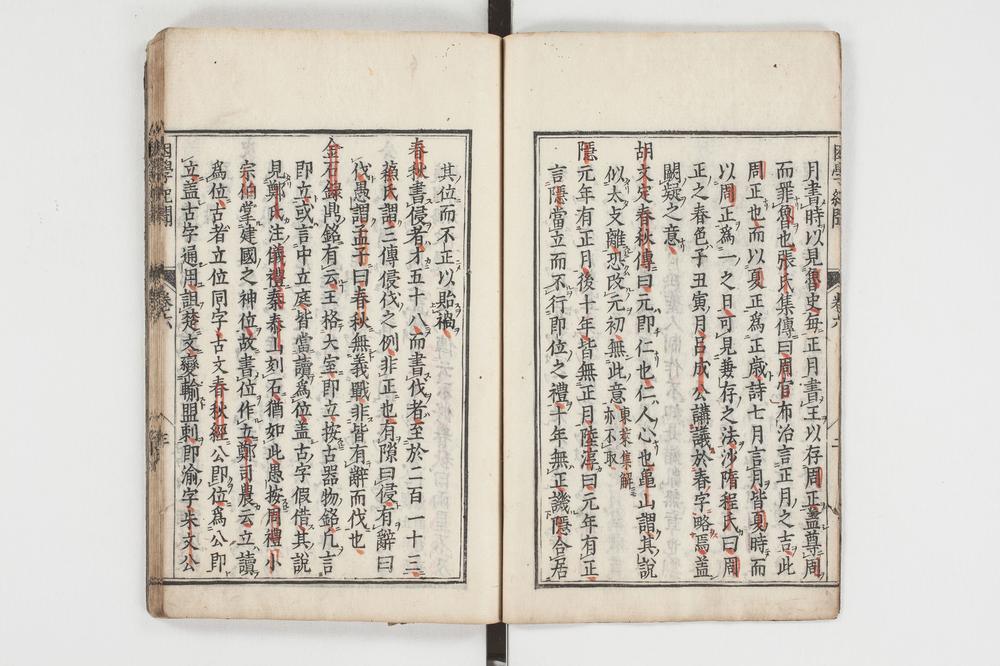 月書時以見魯史每正月書王以存周正盖尊周
而罪魯也張氏集傳曰周官布治言正月之吉此
周正也而以夏正為正歲詩七月言月皆夏時而
以周正為一之日可見兼存之法沙隨程氏曰周
正之春包子丑寅月呂成公講議於春字略焉盖
闕疑之意
胡文定春秋傳曰元即仁也仁人心也龜山謂其說
似太支離恐改元初無此意東萊集解亦不取
隱元年有正月後十年皆無正月陸淳曰元年有正
言隱當立而不行即位之禮十年無正譏隱合居
困學紀聞
卷六
二
其位而不正以貽禍
春秋書侵者才五十八而書伐者至於二百一十三
蘇氏謂三傳侵伐之例非正也有隙曰侵有辭曰
伐愚謂孟子曰春秋無義戰非皆有辭而伐也
金石錄鼎銘有云王格大室即立按古器物銘凡言
即立或言中立庭皆當讀為位盖古字假借其說
見鄭氏注儀禮秦泰山刻石猶如此愚按周禮小
宗伯掌建國之神位故書位作立鄭司農云立讀
為位古者立位同字古文春秋經公即位為公即
立盖古字通用詛楚文變輸盟刺即渝字朱文公
困學紀聞
卷六
三